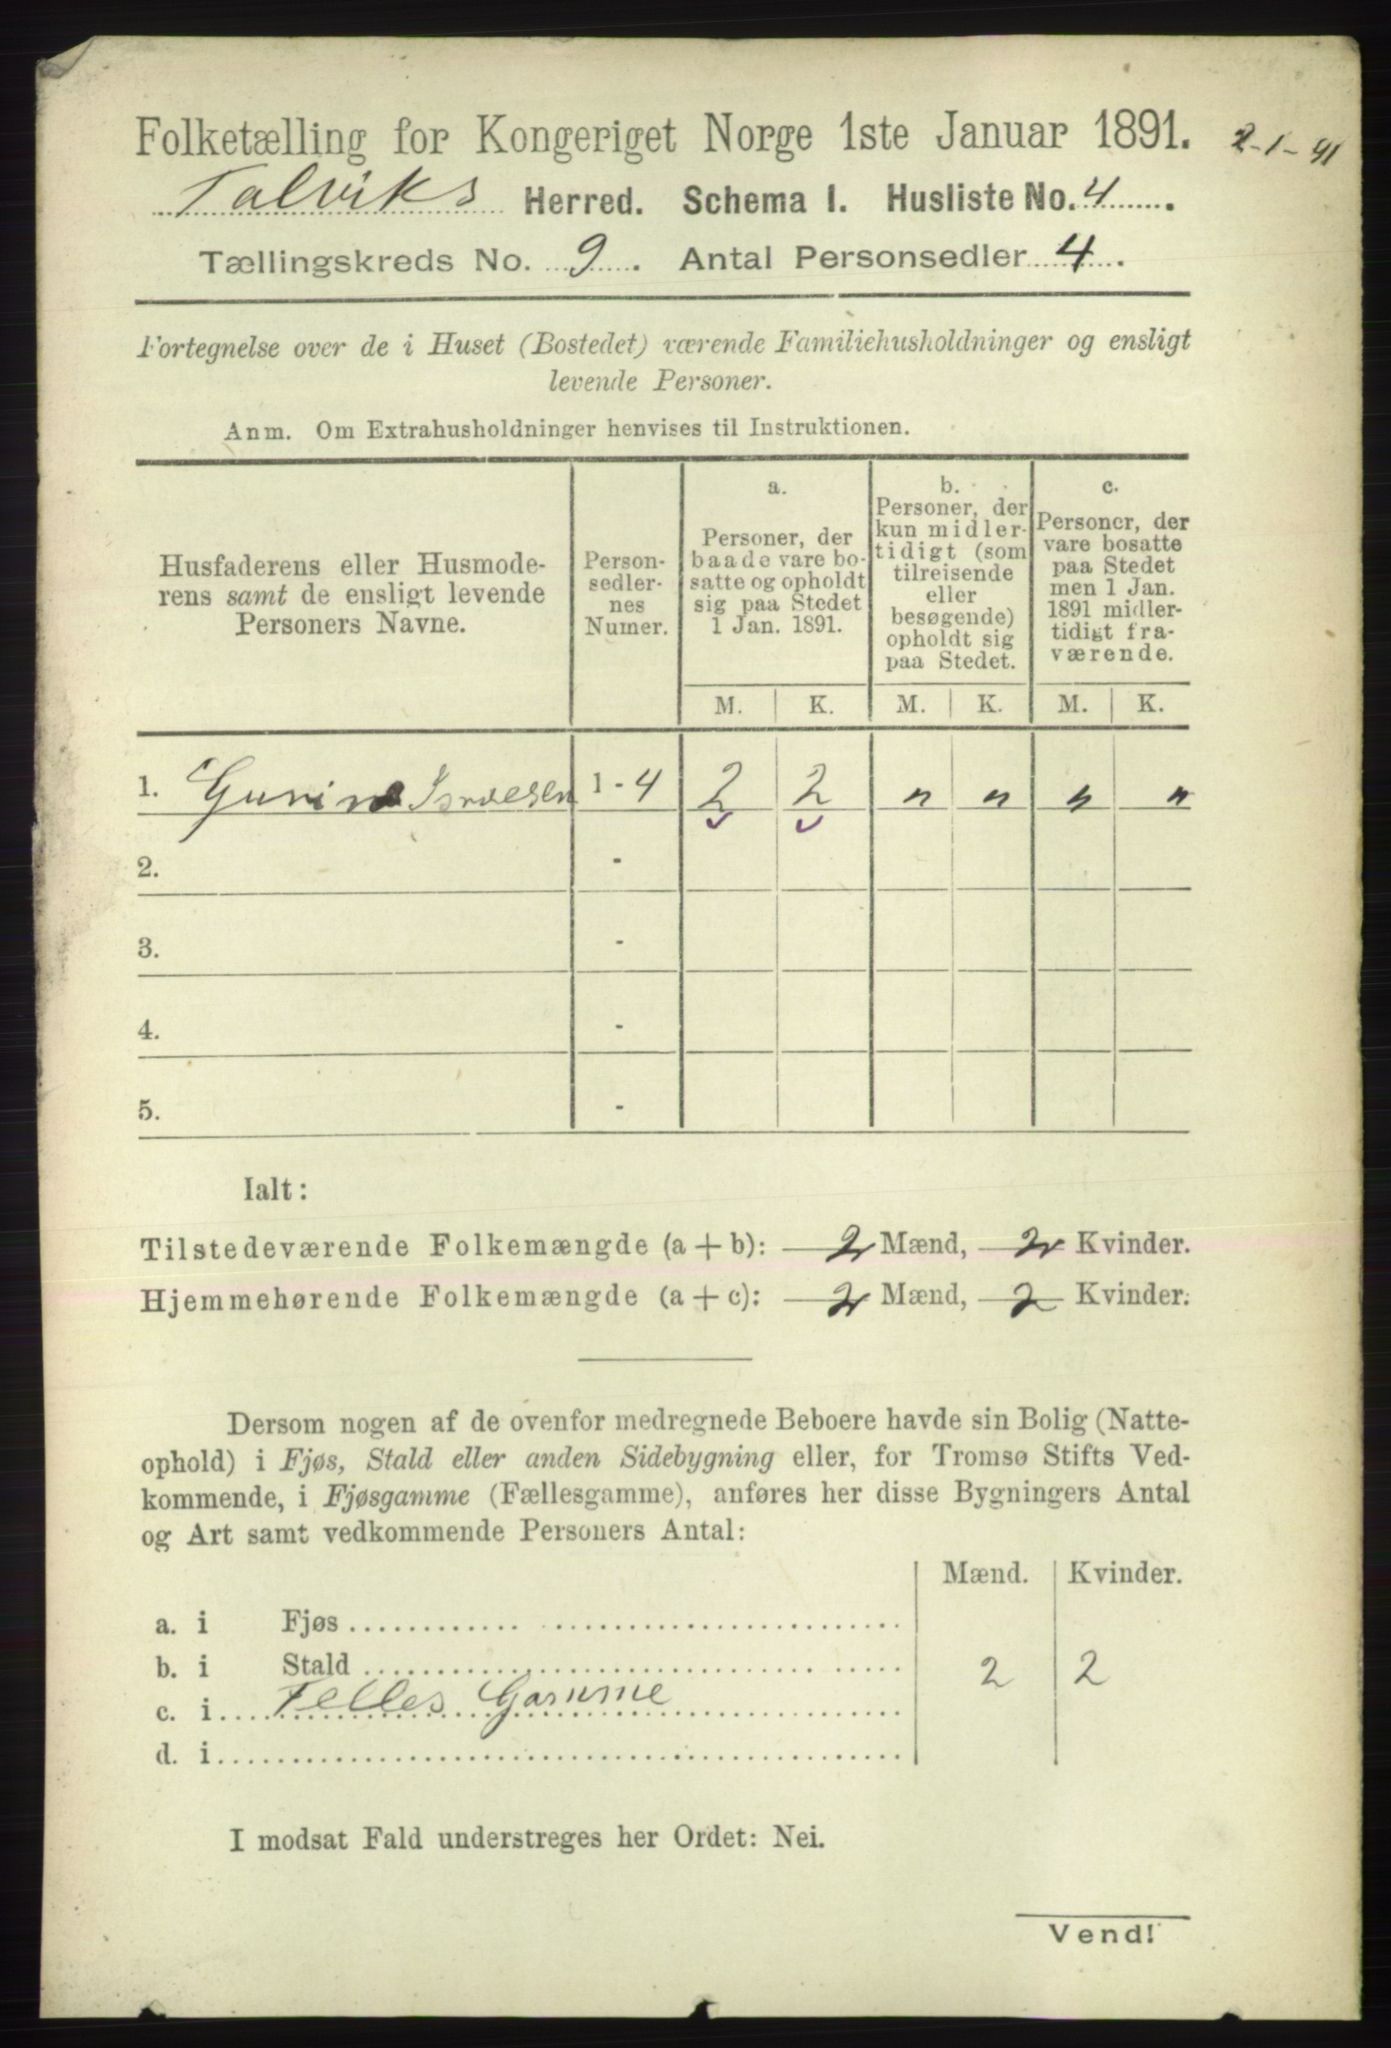 Folketælling for Kongeriget Norge 1ste Januar 1891. 2-1-91
Talviks Herred. Schema I. Husliste No. 4.
Tællingskreds No. 9. Antal Personsedler 4.
Fortegnelse over de i Huset (Bostedet) værende Familiehusholdninger og ensligt
levende Personer.
Anm. Om Extrahusholdninger henvises til Instruktionen.
Husfaderens eller Husmode-
rens samt de ensligt levende
Personers Navne.
Person-
sedler-
nes
Numer.
a.
Personer, der
baade vare bo-
satte og opholdt
sig paa Stedet
1 Jan. 1891.
b.
Personer, der
kun midler-
tidigt (som
tilreisende
eller
besøgende)
opholdt sig
paa Stedet.
c.
Personer, der
vare bosatte
paa Stedet
men 1 Jan.
1891 midler-
tidigt fra-
værende.
M. K. M. K. M. K.
1. 1 - 4 2 2 " " " "
2. -
3. -
4. -
5. -
Ialt:
Tilstedeværende Folkemængde (a + b): 2 Mænd, 2 Kvinder.
Hjemmehørende Folkemængde (a + c): 2 Mænd, 2 Kvinder.
Dersom nogen af de ovenfor medregnede Beboere havde sin Bolig (Natte-
ophold) i Fjøs, Stald eller anden Sidebygning eller, for Tromsø Stifts Ved-
kommende, i Fjøsgamme (Fællesgamme), anføres her disse Bygningers Antal
og Art samt vedkommende Personers Antal:
Mænd. Kvinder.
a. i Fjøs
b. i Stald 2 2
c. i Felles Gamme
d. i
I modsat Fald understreges her Ordet: Nei.
Vend!